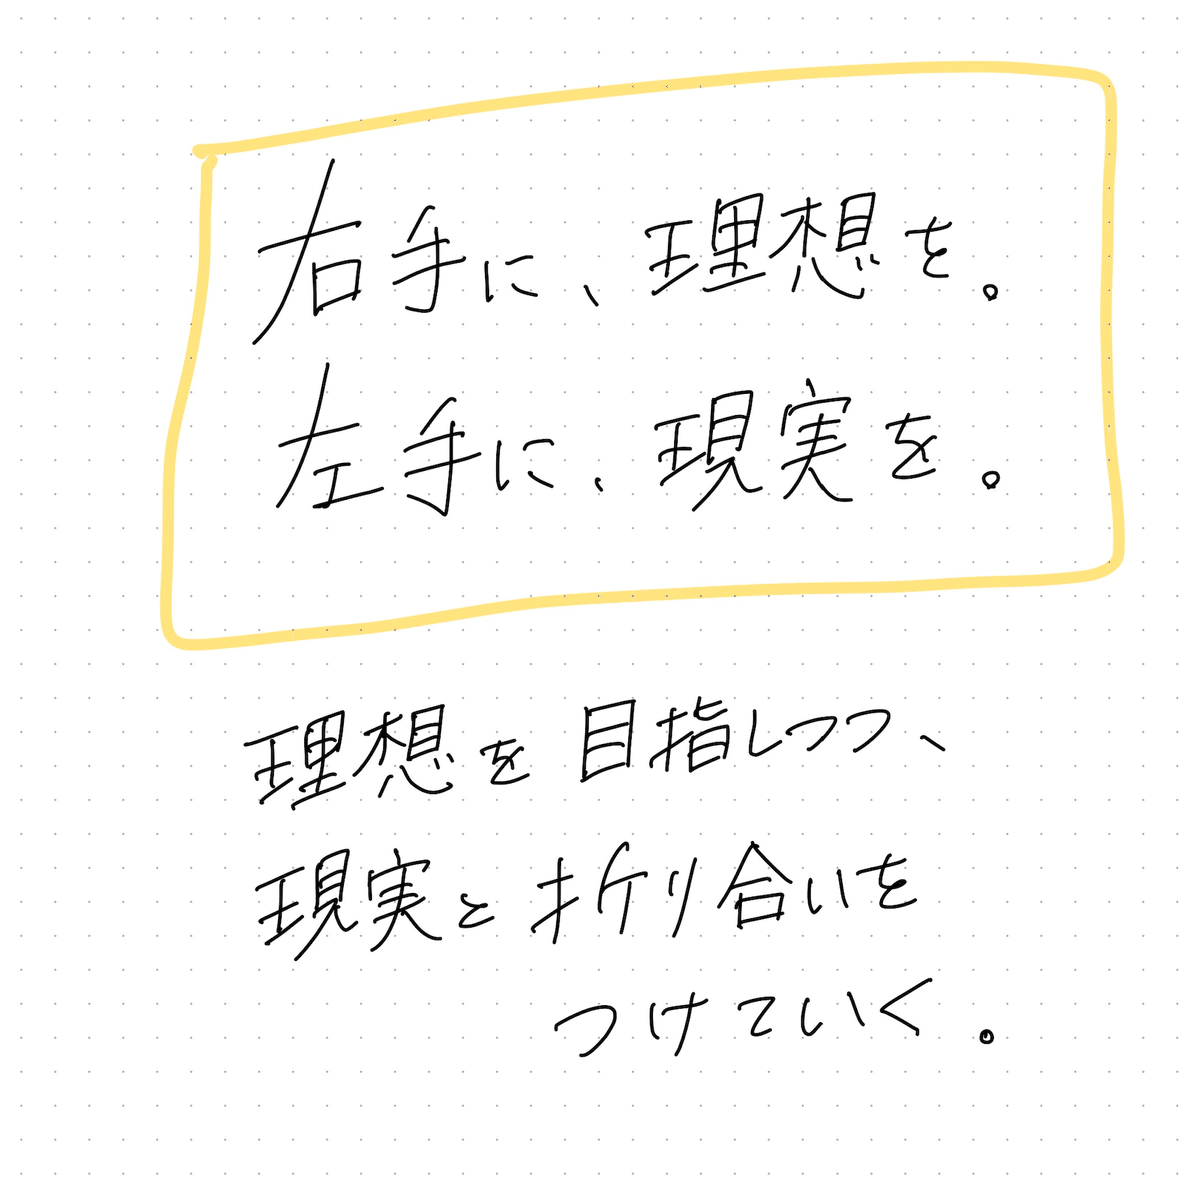 右手に、理想を。
左手に、現実を。
理想を目指しつつ、
現実と折り合いを
つけていく。